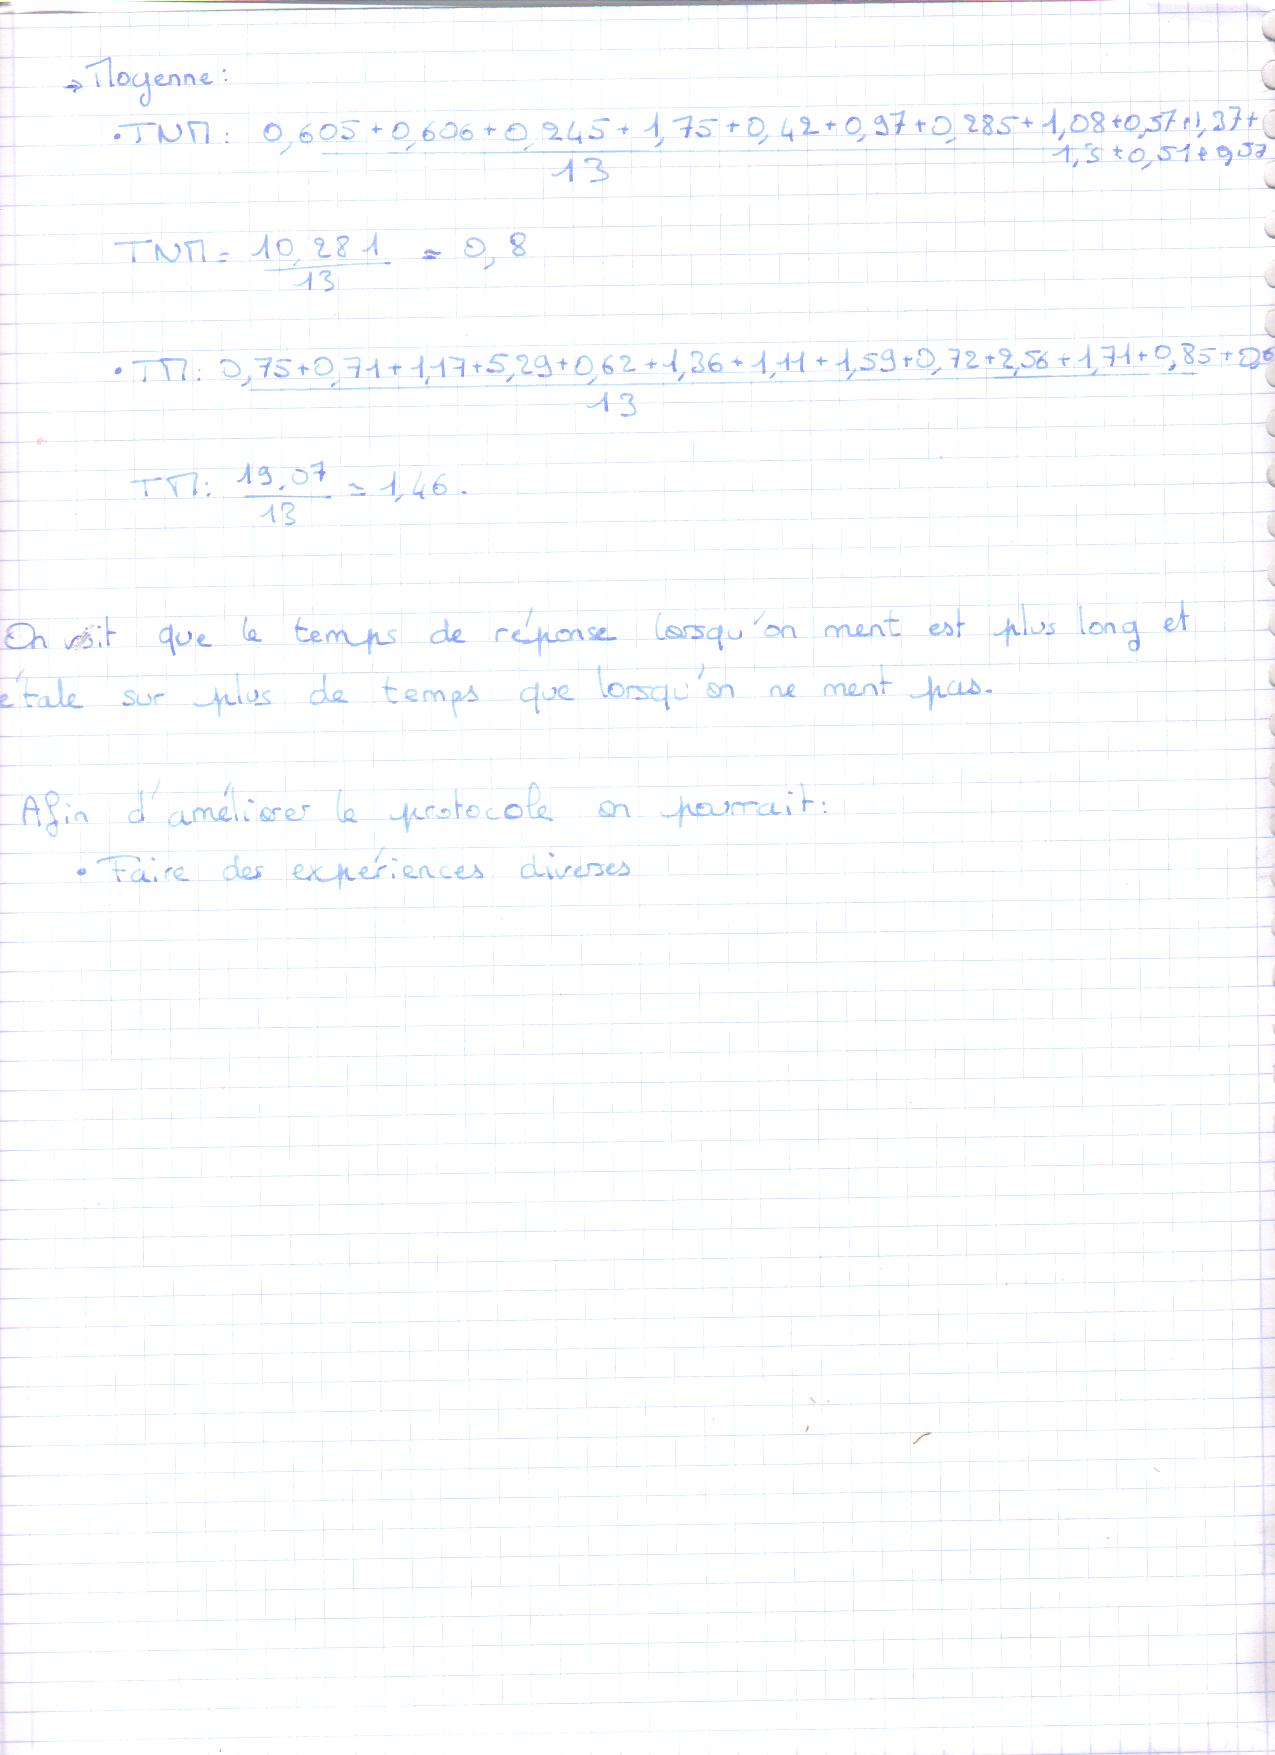 → Moyenne :
• TNM : 0,605 + 0,606 + 0,245 + 1,75 + 0,42 + 0,97 + 0,285 + 1,08 + 0,57 + 1,37 +
1,3 + 0,51 + 0,57
13
TNM = 10,281 = 0,8
13
• TM : 0,75 + 0,71 + 1,17 + 5,29 + 0,62 + 1,36 + 1,11 + 1,59 + 0,72 + 2,56 + 1,71 + 0,85 +
13
TM : 19,07 = 1,46.
13
On voit que le temps de réponse lorsqu'on ment est plus long et
étale sur plus de temps que lorsqu'on ne ment pas.
Afin d'améliorer le protocole on pourrait :
• Faire des expériences diverses